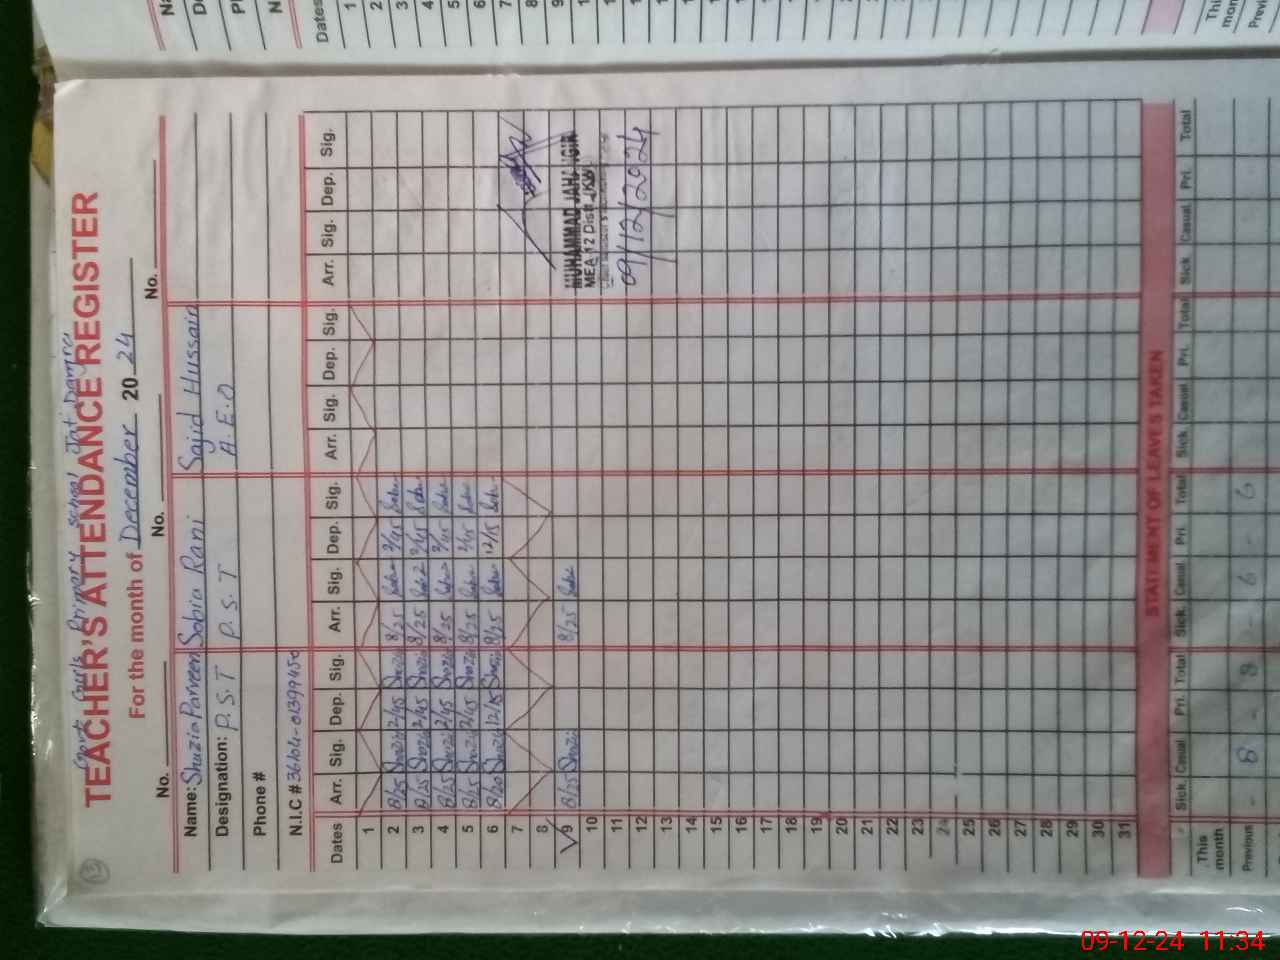 Govt Girls Primary School Jat Damra
TEACHER'S ATTENDANCE REGISTER
For the month of December 2024
No. No. No. No.
Name: Shazia Parveen Sobia Rani Sajid Hussain
Designation: P.S.T P.S.T A.E.O
Phone #
N.I.C #
Dates Arr. Sig. Dep. Sig. Arr. Sig. Dep. Sig. Arr. Sig. Dep. Sig. Arr. Sig. Dep. Sig.
1
2 8/25 Shazia 2/45 Shazia 8/25 2/45
3 8/25 Shazia 2/45 Shazia 8/25 2/45
4 8/25 Shazia 2/45 Shazia 8/25 2/45
5 8/25 Shazia 2/45 Shazia 8/25 2/45
6 8/20 Shazia 12/15 Shazia 8/25 12/15
7
8
9 8/25 Shazia 8/25 MUHAMMAD JAHANGIR
10 MEA 12 Distt
11
12 09/12/2024
13
14
15
16
17
18
19
20
21
22
23
24
25
26
27
28
29
30
31
STATEMENT OF LEAVES TAKEN
This month Sick Casual Pri. Total Sick. Casual Pri. Total Sick. Casual Pri. Total Sick Casual Pri. Total
Previous - 8 - 8 - 6 - 6
09-12-24 11:34